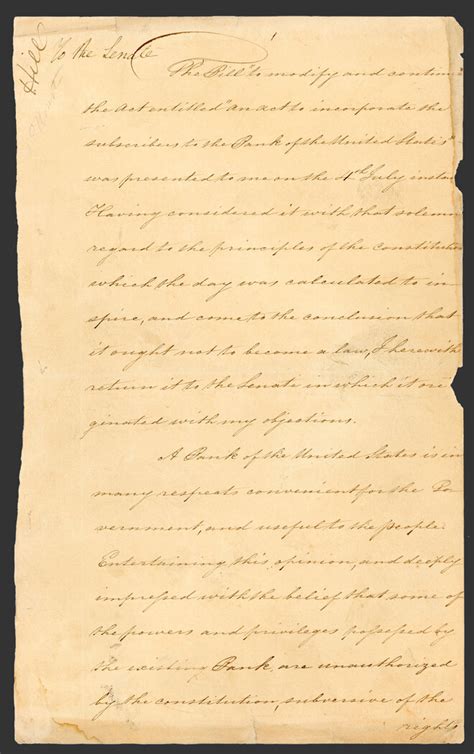 Hill
To the Senate
The Bill "to modify and continue
the act entitled "an act to incorporate the
subscribers to the Bank of the United States"
was presented to me on the 4th July instant
Having considered it with that solemn
regard to the principles of the constitution
which the day was calculated to in-
spire, and come to the conclusion that
it ought not to become a law, I herewith
return it to the Senate in which it ori-
ginated with my objections.
A Bank of the United States is in
many respects convenient for the Go-
vernment, and useful to the people.
Entertaining this opinion, and deeply
impressed with the belief that some of
the powers and privileges possessed by
the existing Bank are unauthorized
by the constitution, subversive of the
rights